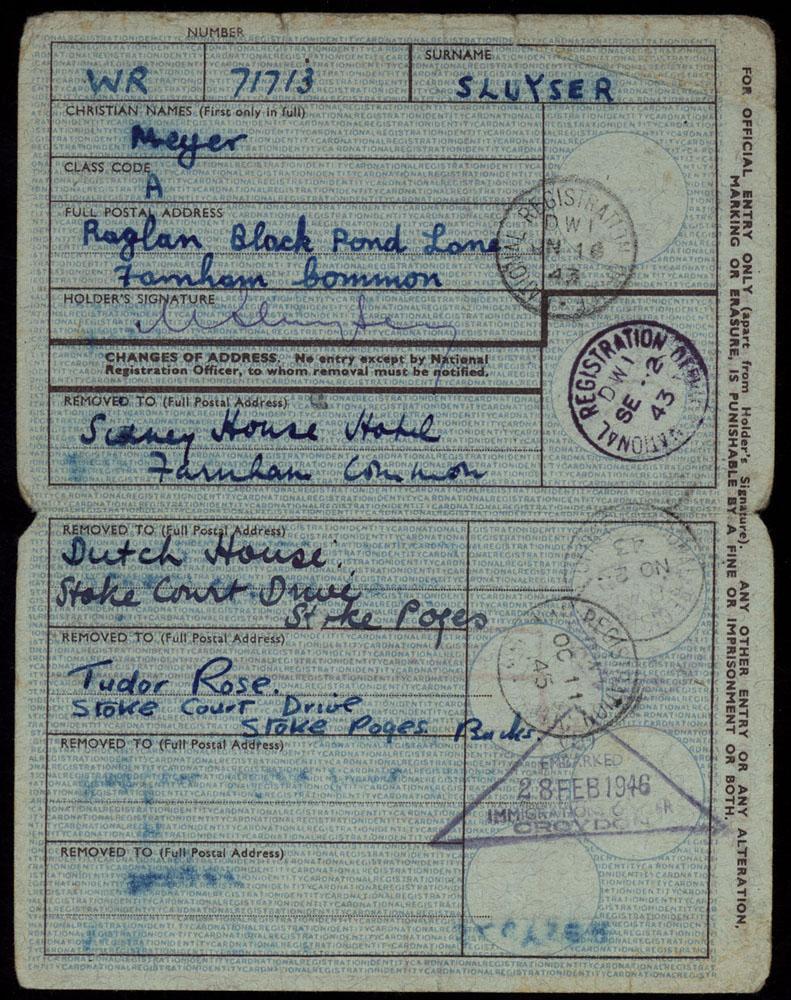 NUMBER
WR 71713
SURNAME
SLUYSER
CHRISTIAN NAMES (First only in full)
Meyer
CLASS CODE
A
FULL POSTAL ADDRESS
Raglan Black Pond Lane
Farnham Common
HOLDER'S SIGNATURE
CHANGES OF ADDRESS. No entry except by National
Registration Officer, to whom removal must be notified.
REMOVED TO (Full Postal Address)
Sidney House Hotel
Farnham Common
REMOVED TO (Full Postal Address)
Dutch House.
Stoke Court Drive
Stoke Poges
REMOVED TO (Full Postal Address)
Tudor Rose.
Stoke Court Drive
Stoke Poges Bucks.
REMOVED TO (Full Postal Address)
REMOVED TO (Full Postal Address)
NATIONAL REGISTRATION
DWI
16
43
NATIONAL REGISTRATION OFFICE
DWI
SE -2
43
NO
43
REGISTRATION
OC 11
45
EMBARKED
28 FEB 1946
IMMIGRATION
CROYDON
FOR OFFICIAL ENTRY ONLY (apart from Holder's Signature). ANY OTHER ENTRY OR ANY ALTERATION,
MARKING OR ERASURE, IS PUNISHABLE BY A FINE OR IMPRISONMENT OR BOTH.